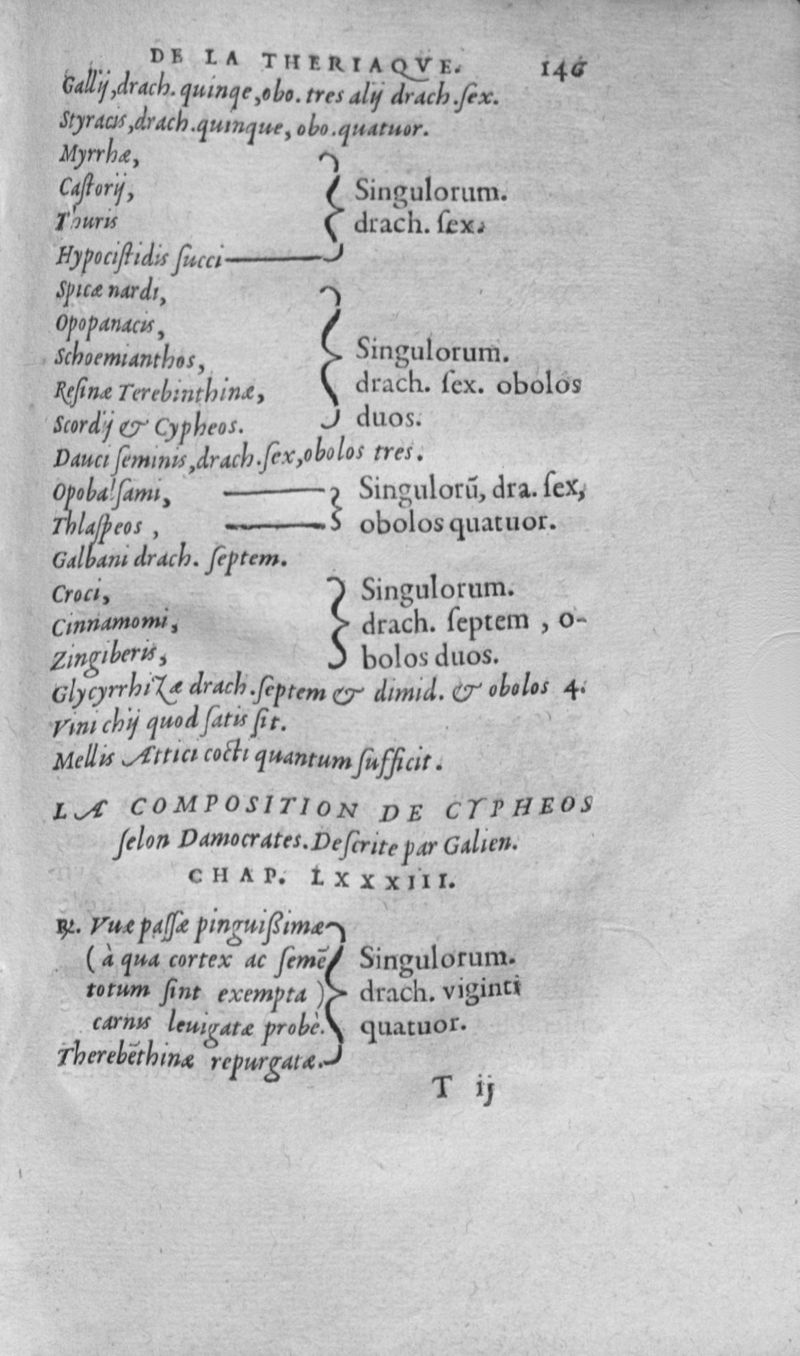 DE LA THERIAQVE. 146
Gallij, drach. quinqe, obo. tres alij drach. ſex.
Styracis, drach. quinque, obo. quatuor.
Myrrhæ,
Caſtorij, Singulorum.
Thuris drach. ſex.
Hypociſtidis ſucci
Spicæ nardi,
Opopanacis,
Schoemianthos, Singulorum.
Reſinæ Terebinthinæ, drach. ſex. obolos
Scordij & Cypheos. duos.
Dauci ſeminis, drach. ſex, obolos tres.
Opobalſami, Singulorū, dra. ſex,
Thlaſpeos, obolos quatuor.
Galbani drach. ſeptem.
Croci, Singulorum.
Cinnamomi, drach. ſeptem, o-
Zingiberis, bolos duos.
Glycyrrhizæ drach. ſeptem & dimid. & obolos 4.
Vini chij quod ſatis ſit.
Mellis Attici cocti quantum ſufficit.
LA COMPOSITION DE CYPHEOS
ſelon Damocrates. Deſcrite par Galien.
CHAP. LXXXIII.
℞. Vuæ paſſæ pinguißimæ
(à qua cortex ac ſemē Singulorum.
totum ſint exempta) drach. viginti
carnis leuigatæ probè. quatuor.
Therebēthinæ repurgatæ.
T ij